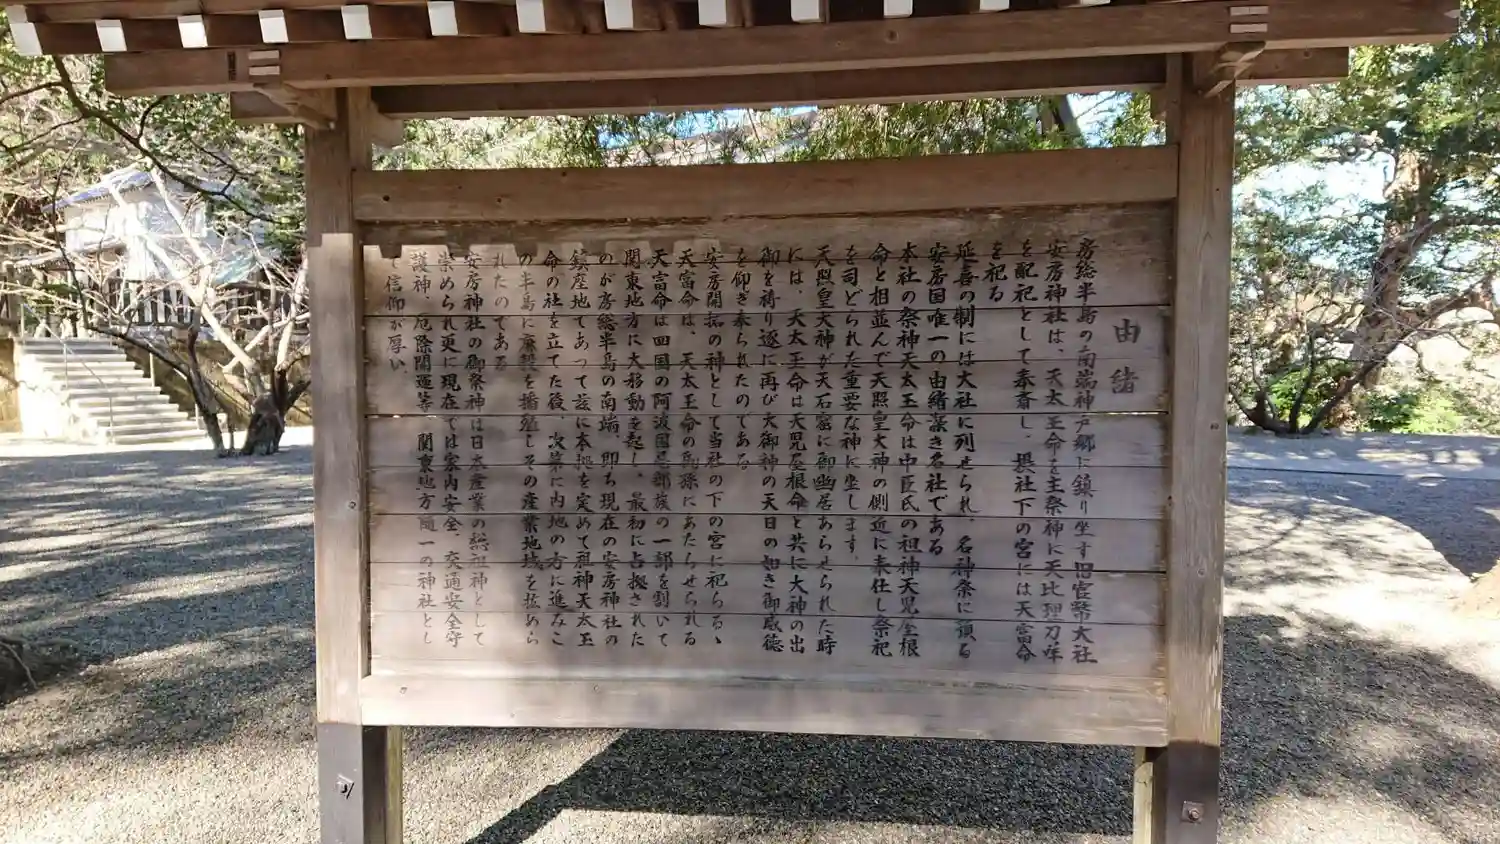 由緒
房総半島の南端神戸郷に鎮り坐す旧官幣大社
安房神社は、天太玉命を主祭神に天比理刀咩
を配祀として奉斎し、摂社下の宮には天富命
を祀る
延喜の制には大社に列せられ、名神祭に預る
安房国唯一の由緒深き名社である
本社の祭神天太玉命は中臣氏の祖神天児屋根
命と相並んで天照皇大神の側近に奉仕し祭祀
を司どられた重要な神に坐します、
天照皇大神が天石窟に御幽居あらせられた時
には、天太玉命は天児屋根命と共に大神の出
御を祷り遂に再び大御神の天日の如き御威徳
を仰ぎ奉られたのである
安房開拓の神として当社の下の宮に祀らるゝ
天富命は、天太玉命の孫にあたらせられる
天富命は四国の阿波国忌部族の一部を割いて
関東地方に大移動を起し、最初に占拠された
のが房総半島の南端、即ち現在の安房神社の
鎮座地であって茲に本拠を定めて祖神天太玉
命の社を立てた後、次第に内地の方に進みこ
の半島に麻穀を播殖しその産業地域を拡めら
れたのである
安房神社の御祭神は日本産業の総祖神として
崇められ更に現在では家内安全、交通安全守
護神、厄除開運等、関東地方随一の神社とし
て信仰が厚い、